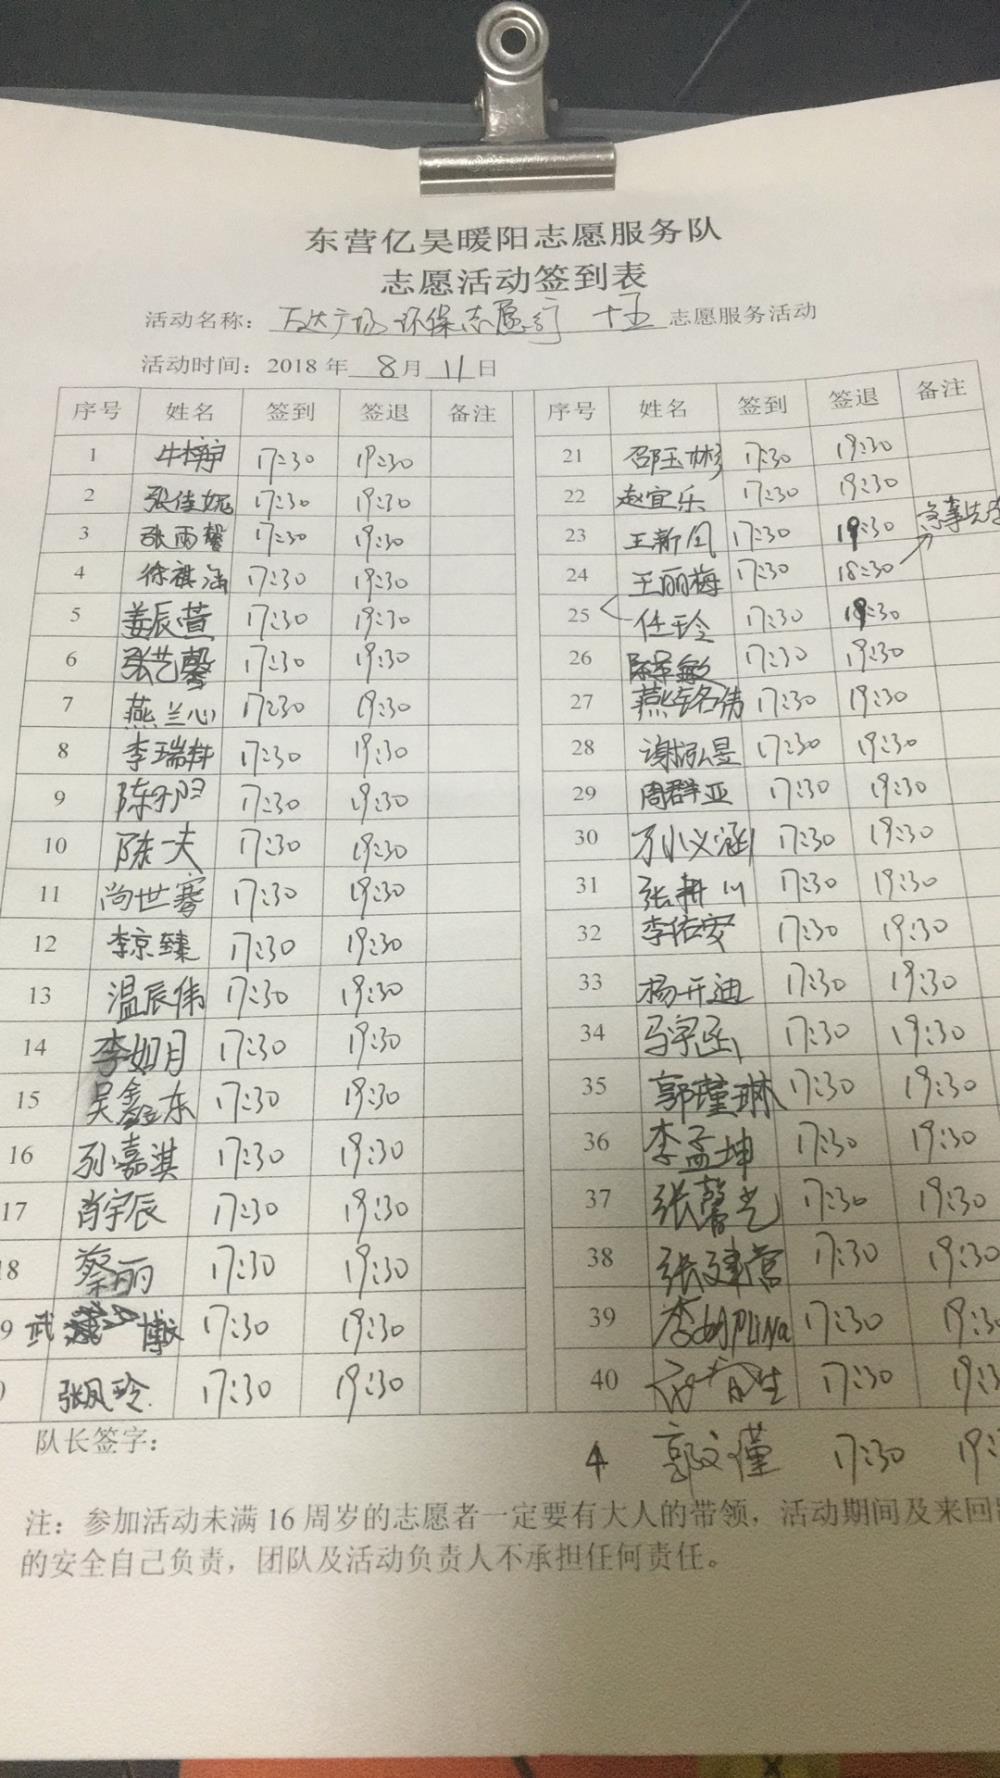 东营亿昊暖阳志愿服务队
志愿活动签到表
活动名称：万达广场环保志愿行 十五 志愿服务活动
活动时间：2018年 8月 11日
序号 姓名 签到 签退 备注 序号 姓名 签到 签退 备注
1 17:30 19:30 21 邵玉彬 17:30 19:30
2 张佳妮 17:30 19:30 22 赵宜乐 17:30 19:30
3 张雨馨 17:30 19:30 23 王新凤 17:30 19:30 急事先
4 徐祺涵 17:30 19:30 24 王丽梅 17:30 18:30
5 姜辰萱 17:30 19:30 25 任玲 17:30 19:30
6 张艺馨 17:30 19:30 26 17:30 19:30
7 燕兰心 17:30 19:30 27 燕铭伟 17:30 19:30
8 李瑞耕 17:30 19:30 28 谢泓昱 17:30 19:30
9 17:30 19:30 29 周群亚 17:30 19:30
10 陈一夫 17:30 19:30 30 17:30 19:30
11 尚世骞 17:30 19:30 31 张耕川 17:30 19:30
12 李京臻 17:30 19:30 32 李佑安 17:30 19:30
13 温辰伟 17:30 19:30 33 杨开迪 17:30 19:30
14 李如月 17:30 19:30 34 马宇函 17:30 19:30
15 吴鑫东 17:30 19:30 35 郭瑾琳 17:30 19:30
16 孙嘉淇 17:30 19:30 36 李孟坤 17:30 19:30
17 肖宇辰 17:30 19:30 37 张馨艺 17:30 19:30
8 蔡丽 17:30 19:30 38 张建营 17:30 19:30
9 武 博文 17:30 19:30 39 17:30 19:30
张凤玲 17:30 19:30 40 17:30 19:3
队长签字：
郭文瑾 17:30 19:3
注：参加活动未满16周岁的志愿者一定要有大人的带领，活动期间及来回
的安全自己负责，团队及活动负责人不承担任何责任。